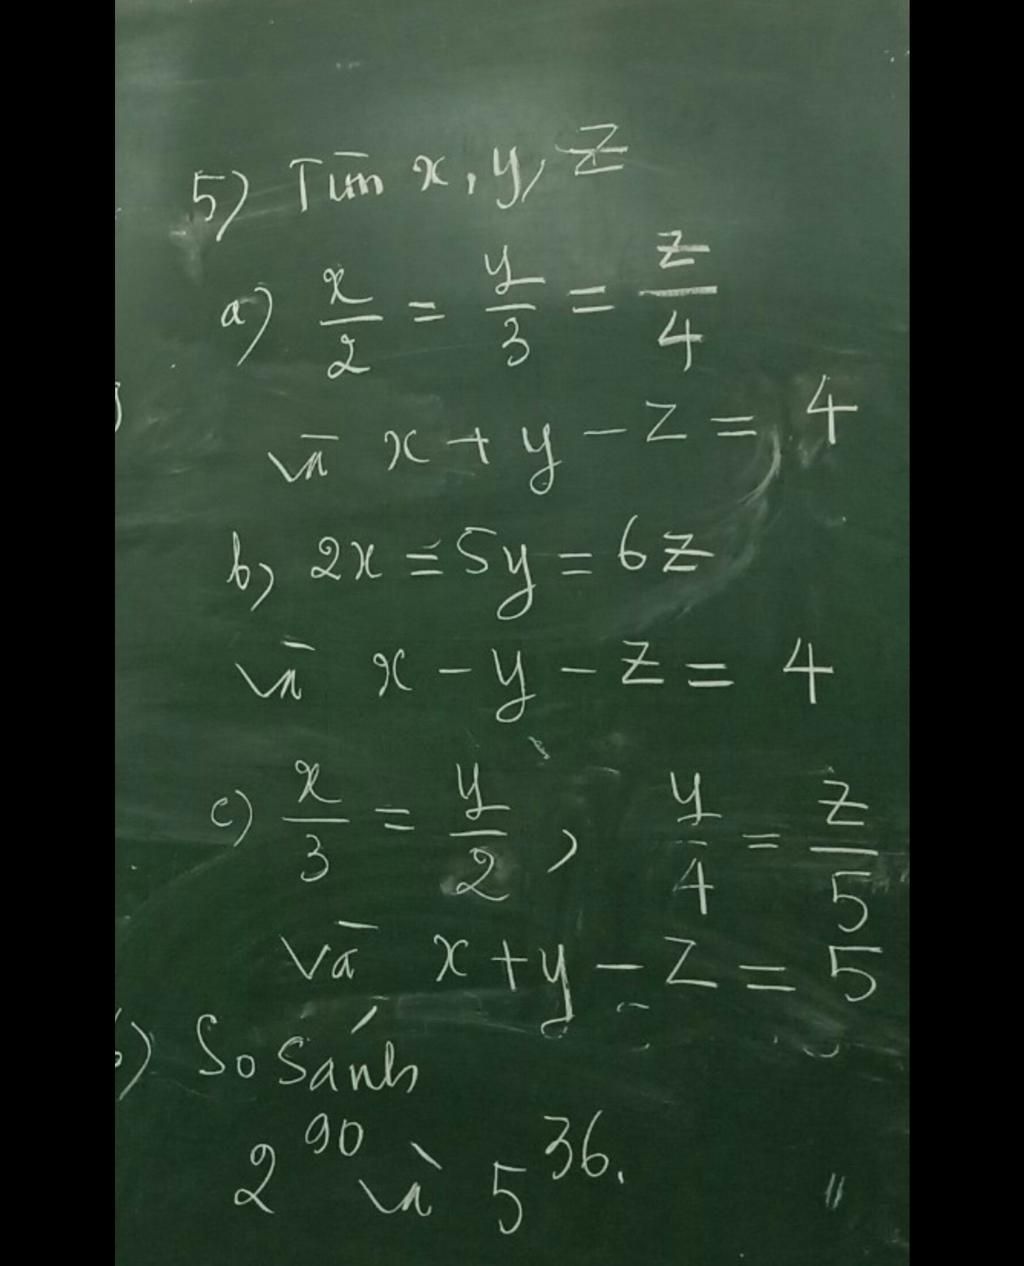 5) Tìm x, y, z
a) x/2 = y/3 = z/4
và x + y - z = 4
b) 2x = 5y = 6z
và x - y - z = 4
c) x/3 = y/2 , y/4 = z/5
và x + y - z = 5
6) So sánh
2^90 và 5^36.